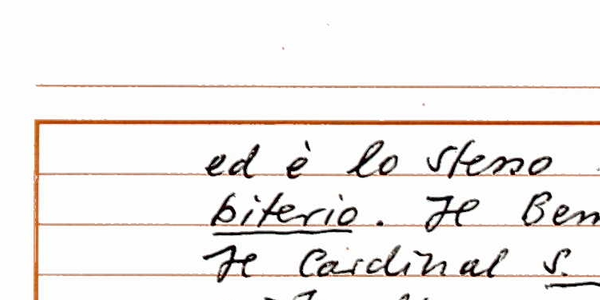 ed è lo stesso
biterio. Il Ben
Il Cardinal S.